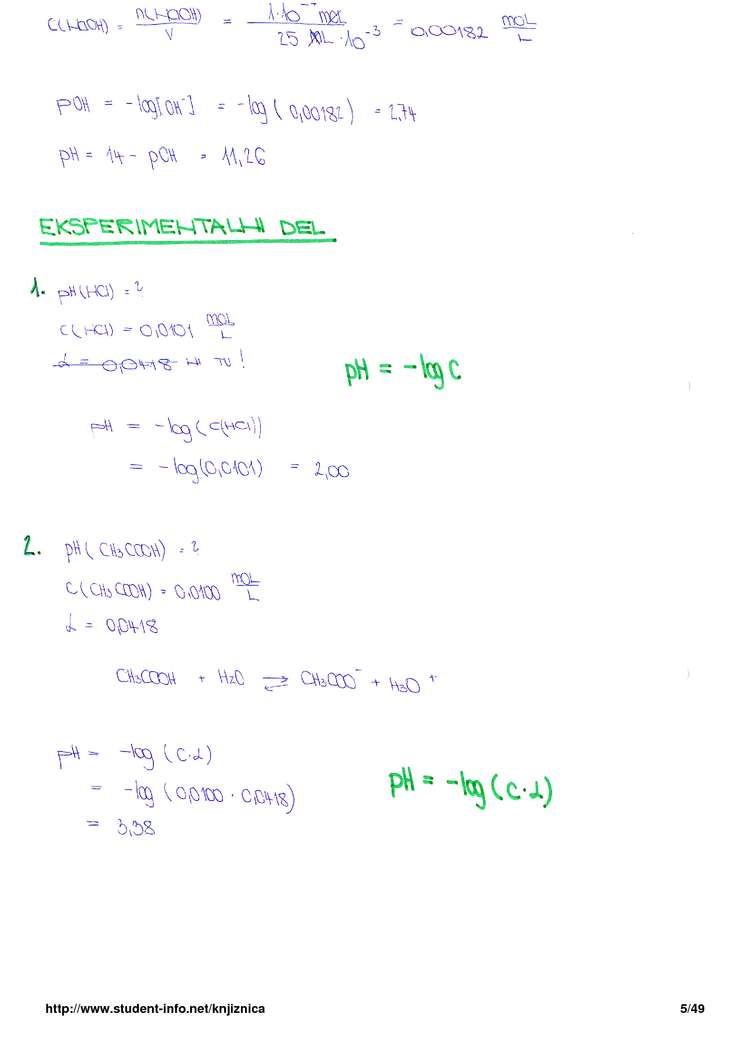 C(NaOH) = n(NaOH) / V = 1·10 mol / 25 mL · 10⁻³ = 0,00182 mol / L
pOH = -log[OH⁻] = -log(0,00182) = 2,74
pH = 14 - pOH = 11,26
EKSPERIMENTALNI DEL
1. pH(HCl) = ?
C(HCl) = 0,0101 mol / L
α = 0,0418 NI TU!
pH = -log C
pH = -log(C(HCl))
= -log(0,0101) = 2,00
2. pH(CH₃COOH) = ?
C(CH₃COOH) = 0,0100 mol / L
α = 0,0418
CH₃COOH + H₂O ⇌ CH₃COO⁻ + H₃O⁺
pH = -log(C·α)
= -log(0,0100 · 0,0418)
pH = -log(C·α)
= 3,38
http://www.student-info.net/knjiznica 5/49